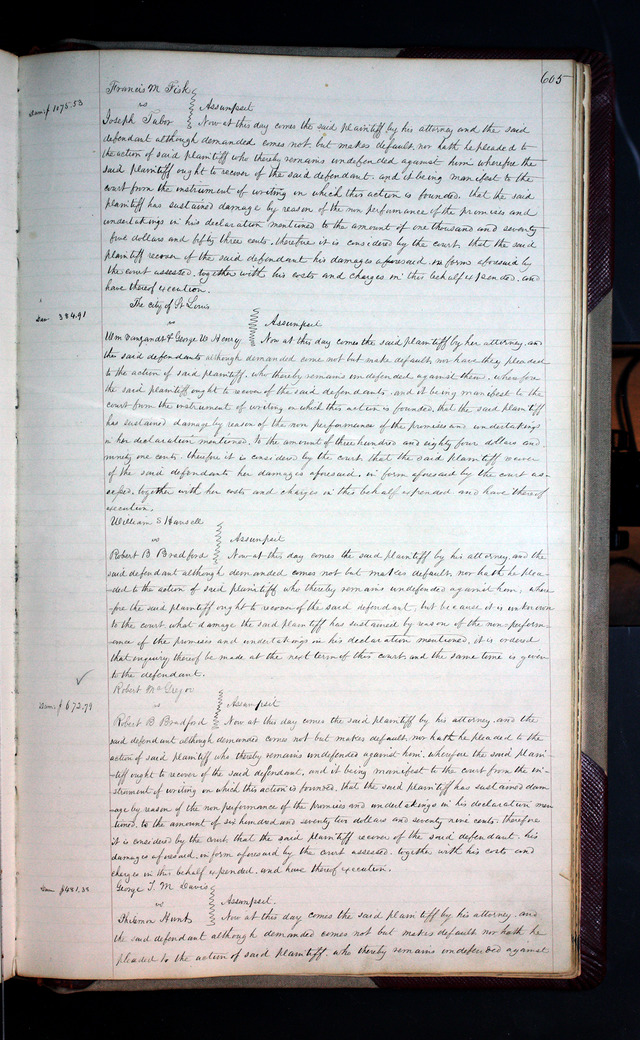 605
Francis M Fisk
vs Assumpsit
Dam: $1075.53
Joseph Tabor Now at this day comes the said plaintiff by his attorney and the said
defendant although demanded comes not but makes default, nor hath he pleaded to
the action of said plaintiff who thereby remains undefended against him wherefore the
said plaintiff ought to recover of the said defendant. and it being manifest to the
court from the instrument of writing on which this action is founded, that the said
plaintiff has sustained damage by reason of the non performance of the promises and
undertakings in his declaration mentioned to the amount of one thousand and seventy
five dollars and fifty three cents. therefore it is considered by the court, that the said
plaintiff recover of the said defendant his damages aforesaid. in form aforesaid by
the court assessed. together with his costs and charges in this behalf expended. and
have thereof execution.
The city of St Louis
Dam 384.91
vs Assumpsit
Wm & George W Henry Now at this day comes the said plaintiff by her attorney, and
the said defendants although demanded come not but make default, nor have they pleaded
to the action of said plaintiff. who thereby remains undefended against them. wherefore
the said plaintiff ought to recover of the said defendants. and it being manifest to the
court from the instrument of writing on which this action is founded, that the said plaintiff
has sustained damage by reason of the non performance of the promises and undertakings
in her declaration mentioned, to the amount of three hundred and eighty four dollars and
ninety one cents. therefore it is considered by the court that the said plaintiff recover
of the said defendants her damages aforesaid. in form aforesaid by the court as-
sessed. together with her costs and charges in this behalf expended and have thereof
execution.
William S Hansell
vs Assumpsit
Robert B Bradford Now at this day comes the said plaintiff by his attorney, and the
said defendant although demanded comes not but makes default, nor hath he plea-
-ded to the action of said plaintiff who thereby remains undefended against him, where
-fore the said plaintiff ought to recover of the said defendant, but because it is unknown
to the court what damage the said plaintiff has sustained by reason of the non-perform-
-ance of the promises and undertakings in his declaration mentioned, it is ordered
that inquiry thereof be made at the next term of this court, and the same time is given
to the defendant.
Robert McGregor
Dam: $672.79
vs Assumpsit
Robert B Bradford Now at this day comes the said plaintiff by his attorney, and the
said defendant although demanded comes not but makes default, nor hath he pleaded to the
action of said plaintiff who thereby remains undefended against him. wherefore the said plain
-tiff ought to recover of the said defendant, and it being manifest to the court from the in-
-strument of writing on which this action is founded, that the said plaintiff has sustained dam
-age by reason of the non performance of the promises and undertakings in his declaration men
-tioned. to the amount of six hundred and seventy two dollars and seventy nine cents. therefore
it is considered by the court, that the said plaintiff recover of the said defendant. his
damages aforesaid, in form aforesaid by the court assessed. together with his costs and
charges in this behalf expended. and have thereof execution.
George T. M Davis
Dam $481.38
vs Assumpsit.
Philemon Hunt Now at this day, comes the said plaintiff by his attorney. and
the said defendant although demanded comes not but makes default nor hath he
pleaded to the action of said plaintiff. who thereby remains undefended against